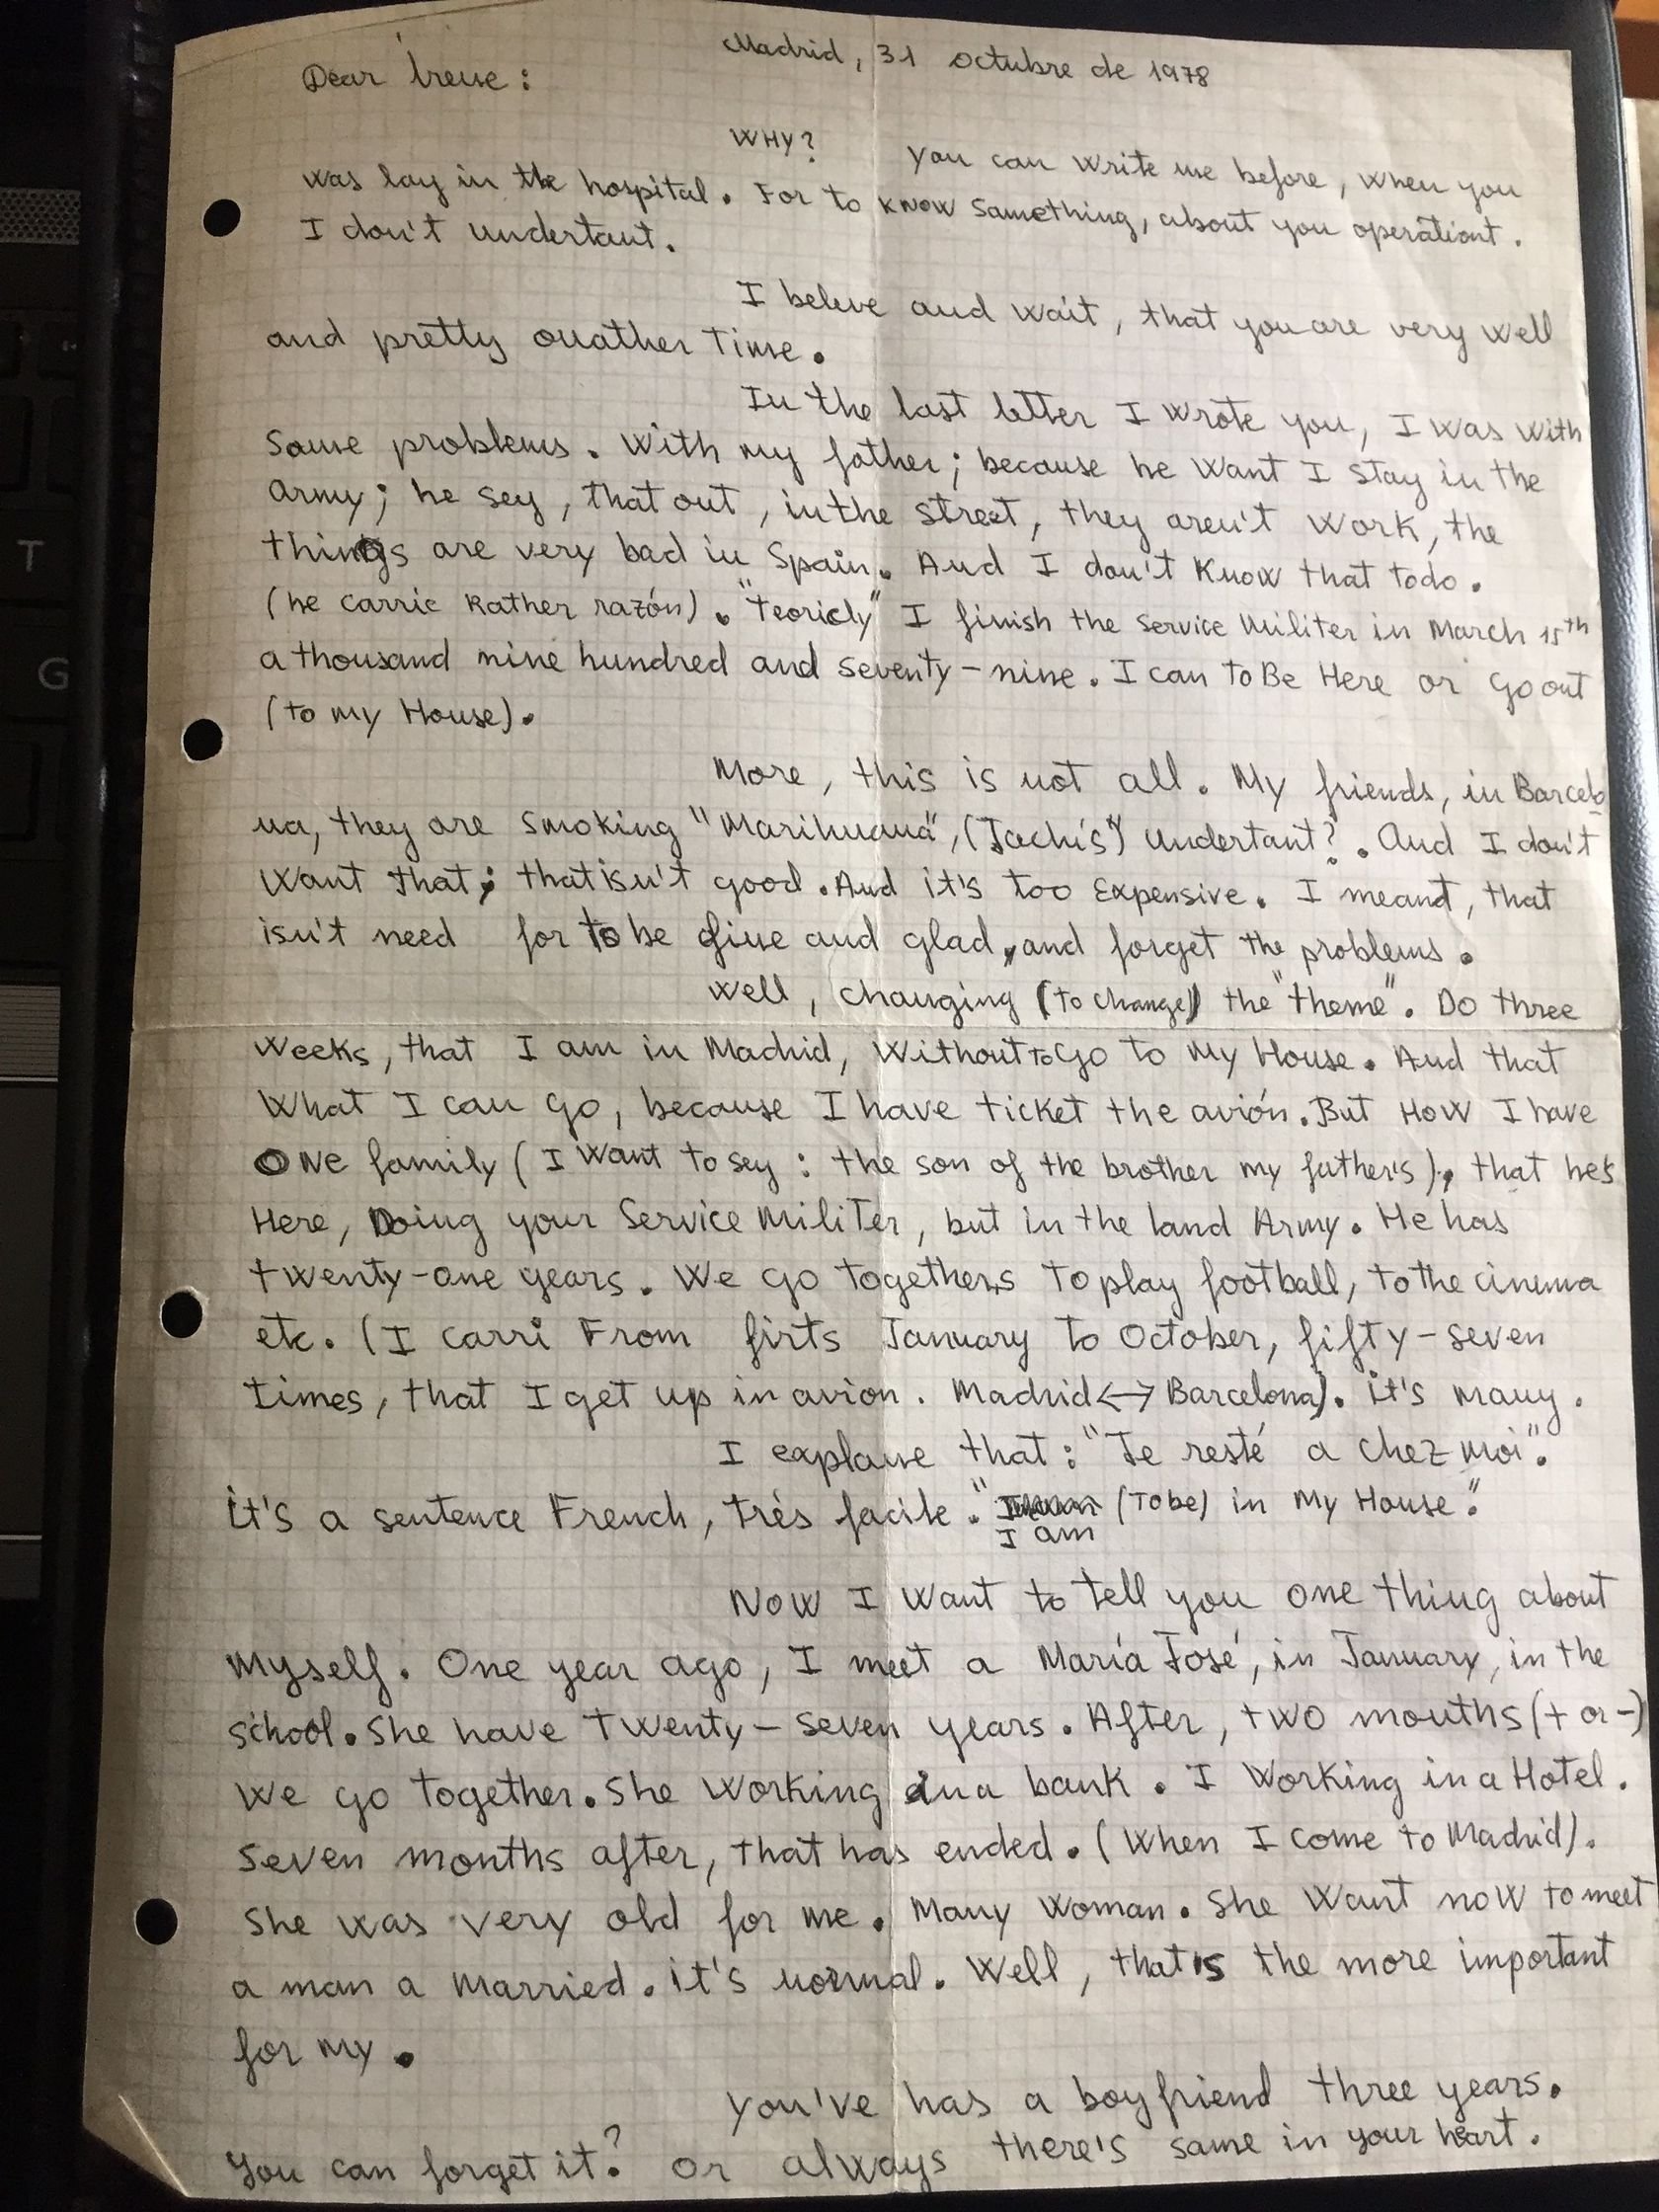 Madrid, 31 octubre de 1978
Dear Irene:
WHY? You can write me before, when you
was lay in the hospital. For to know Something, about you operationt.
I don't undertant.
I beleve and wait, that you are very well
and pretty onather Time.
In the last letter I wrote you, I was with
Same problems. With my father; because he want I stay in the
army; he sey, that out, in the street, they aren't work, the
things are very bad in Spain. And I don't know that todo.
(he carrie Rather razón). "Teoricly" I finish the service Militer in March 15th
a thousand nine hundred and seventy-nine. I can to Be Here or go out
(to my House).
More, this is not all. My friends, in Barcelo
na, they are smoking "Marihuana", (Jachís") undertant?. And I don't
want that; that isn't good. And it's too Expensive. I meant, that
isn't need for to be fine and glad, and forget the problems.
Well, changing (to change) the "theme". Do three
weeks, that I am in Madrid, without to go to my House. And that
What I can go, because I have ticket the avión. But How I have
ONe family (I want to sey: the son of the brother my father's), that he's
Here, Doing your Service Militer, but in the land Army. He has
twenty-one years. We go togethers to play football, to the cinema
etc. (I carri From firts January to October, fifty-seven
times, that I get up in avion. Madrid <-> Barcelona). it's many.
I explane that: "Je resté a chez moi".
it's a sentence French, trés facile. "I am (To be) in My House".
Now I want to tell you one thing about
myself. One year ago, I meet a María José, in January, in the
school. She have twenty-seven years. After, two months (+ or -)
we go together. She working in a bank. I working in a Hotel.
Seven months after, that has ended. (when I come to Madrid).
She was very old for me. Many Woman. She want now to meet
a man a married. it's normal. Well, that is the more important
for my.
You've has a boyfriend three years.
You can forget it? or always there's same in your heart.